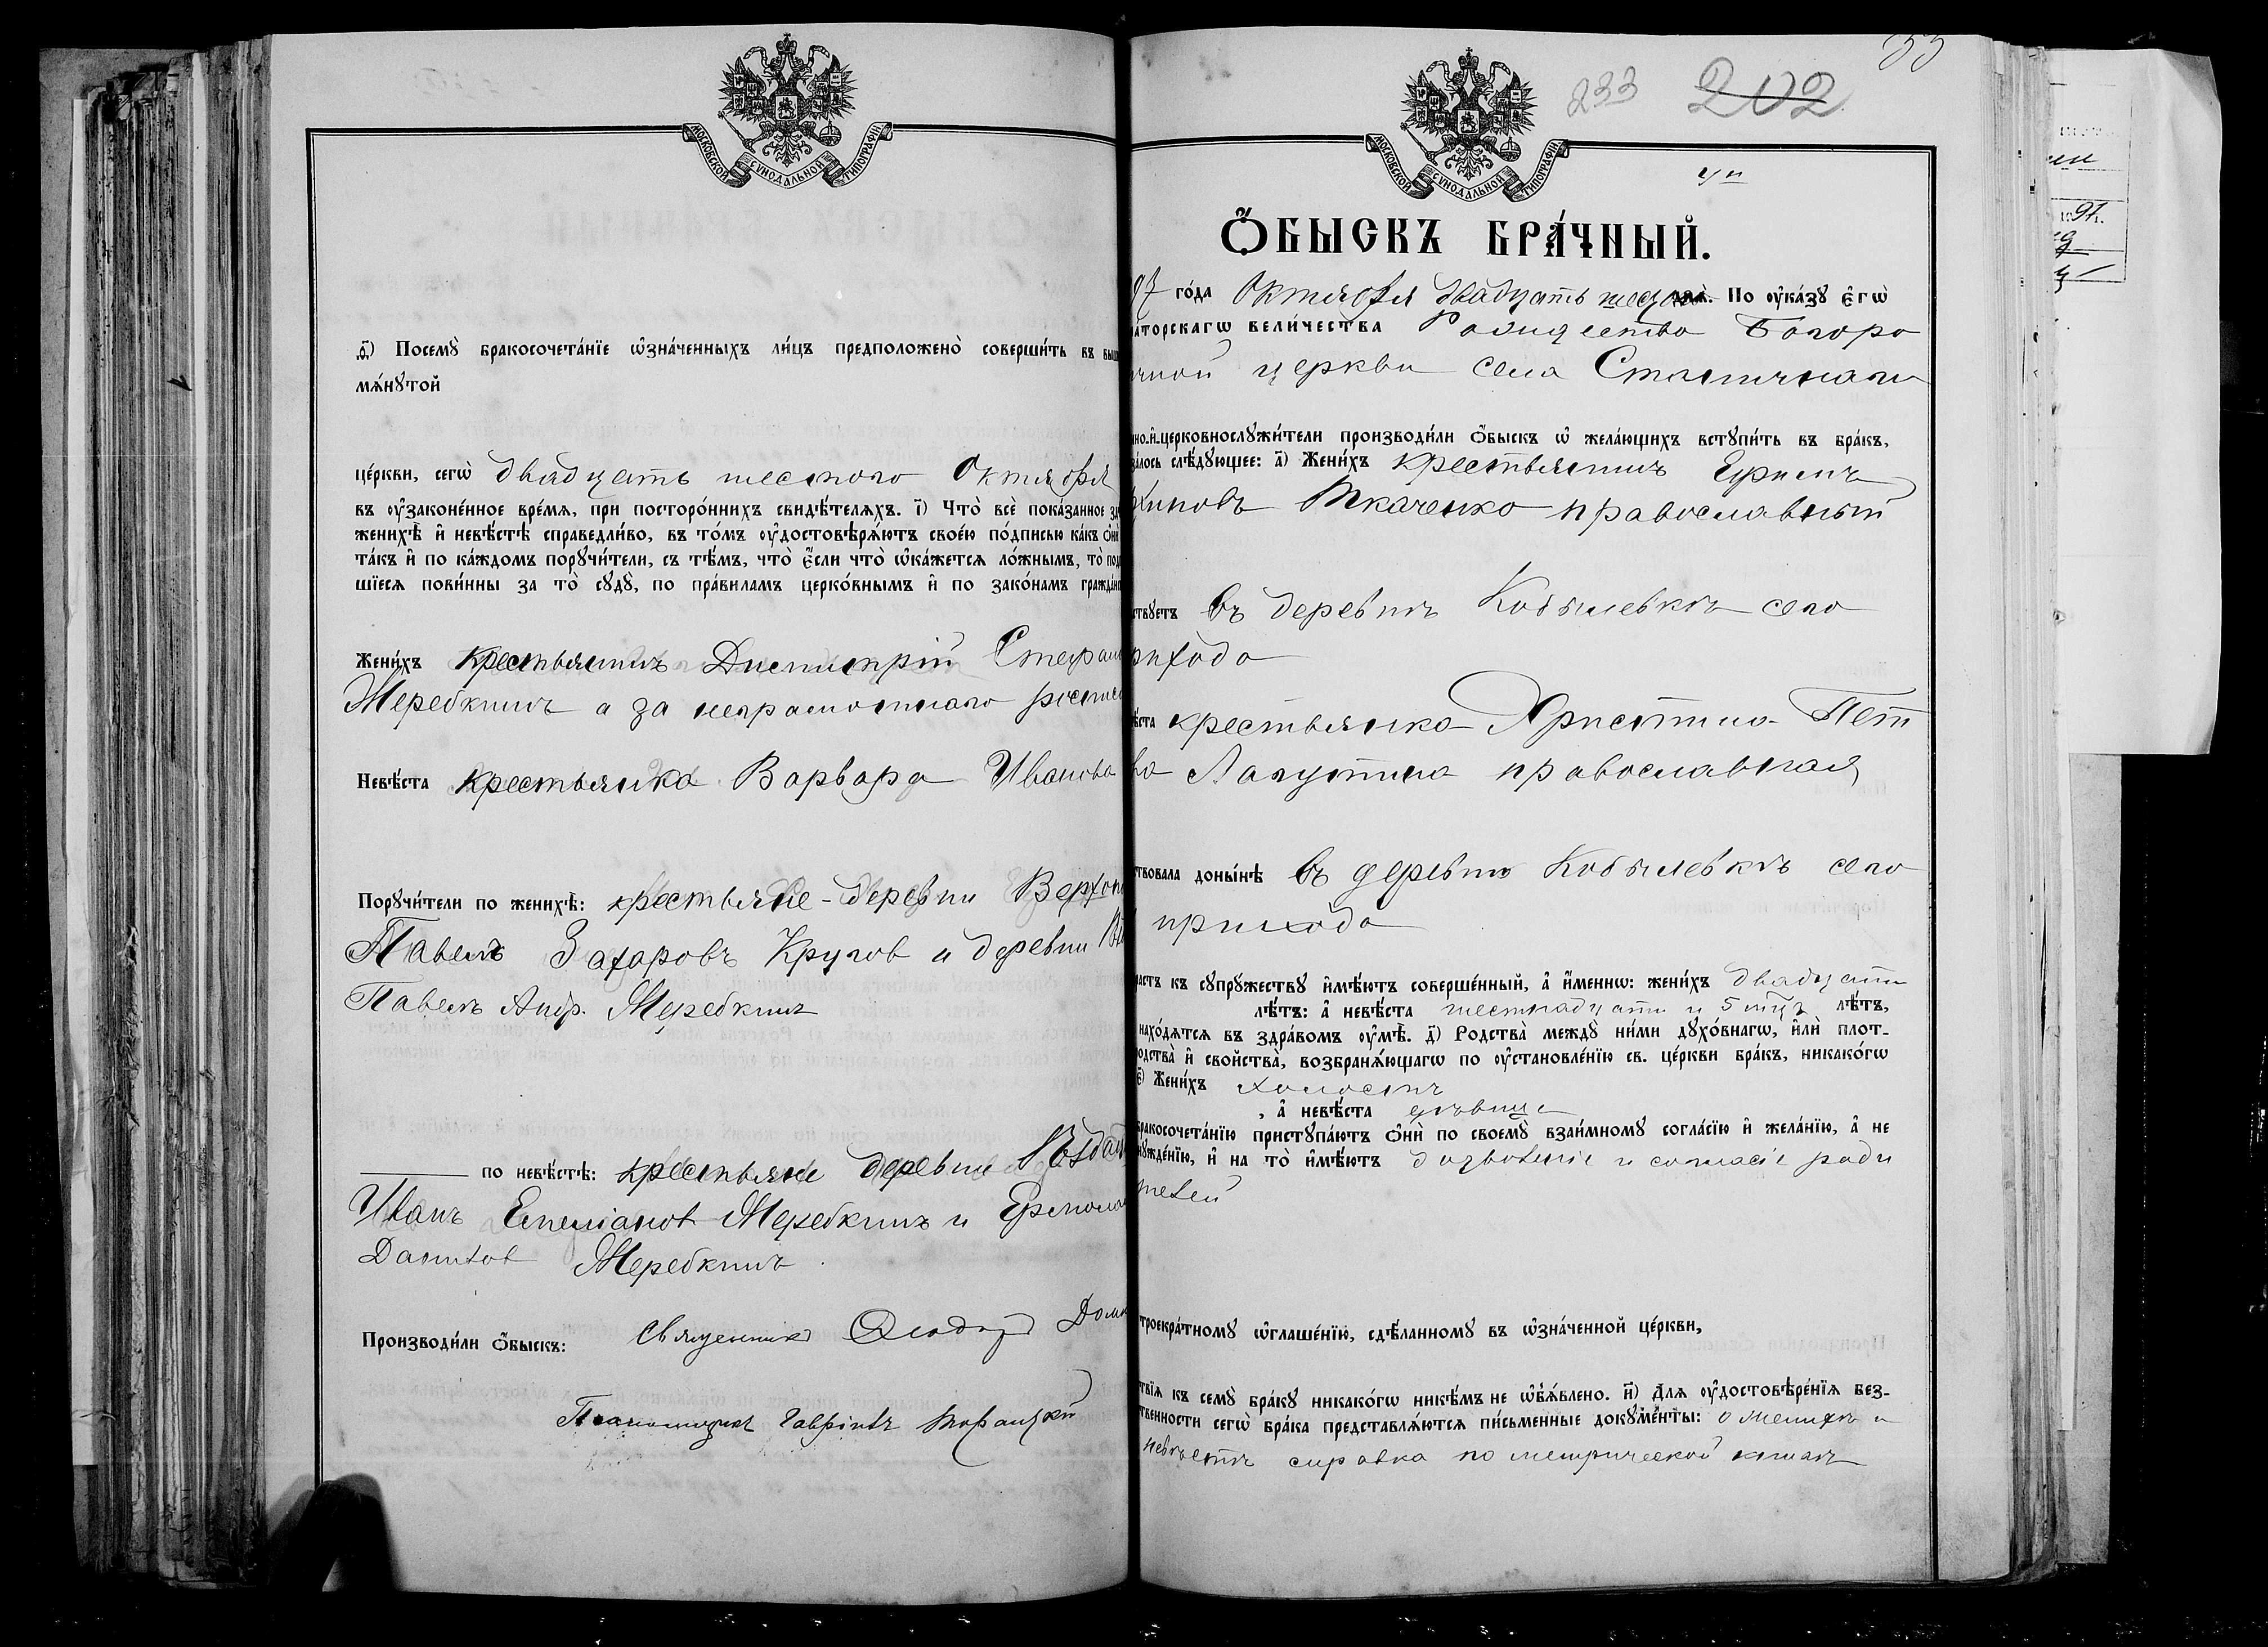 МОСКОВСКОЙ СѴНОДАЛЬНОЙ ТИПОГРАФІИ
ѳ҃) Посемꙋ̀ бракосочета́нїе ѡ҆зна́ченныхъ ли́цъ предположено̀ соверши́ть въ выш
мѧ́нꙋтой
це́ркви, сегѡ̀ двадцать шестого Октября
въ ᲂу҆законе́нное вре́мѧ, при посторо́ннихъ свидѣ́телѧхъ. і҃) Что̀ всѐ пока́занное
женихѣ̀ и҆ невѣ́стѣ справедли́во, въ то́мъ ᲂу҆достовѣрѧ́ютъ свое́ю по́дписью ка́къ ѻ҆нѝ
та́къ и҆ по ка́ждомъ порꙋчи́тели, съ тѣ́мъ, что̀ є҆́сли что̀ ѡ҆ка́жетсѧ ло́жнымъ, то̀ под
шїесѧ пови́нны за то̀ сꙋдꙋ̀, по пра́виламъ церко́внымъ и҆ по зако́намъ гражда́нс
Жени́хъ крестьянинъ Димитрій Стефан
Жеребкинъ а за неграмотнаго
Невѣ́ста крестьянка Варвара Иванова
Порꙋчи́тели по женихѣ̀: крестьяне деревни
Павелъ Захаровъ Круговъ и деревни
Павелъ Андр. Жеребкинъ
по невѣ́стѣ: крестьяне деревни
Иванъ Емелiановъ Жеребкинъ и Ермола
Данилов Жеребкинъ
Производи́ли ѻ҆́быскъ: Священникъ Дом
Псаломщикъ
55
233 202
МОСКОВСКОЙ СѴНОДАЛЬНОЙ ТИПОГРАФІИ
Ѻ҆́БЫСКЪ БРА́ЧНЫЙ.
97 го́да Октября двадцать шест днѧ̀. По ᲂу҆ка́зꙋ є҆гѡ̀
ра́торскагѡ вели́чества Рождество Богоро
ичной церкви села
нно-и҆-церковнослꙋжи́тели производи́ли ѻ҆́быскъ ѡ҆ жела́ющихъ встꙋпи́ть въ бра́къ,
за́лось слѣ́дꙋющее: а҃) Жени́хъ крестьянинъ
хиповъ Ткаченко православный
ствꙋетъ въ деревнѣ Кобылевкѣ сего
рихода
ѣ́ста крестьянка Христина Пет
ва Лагутина православная
ствовала доны́нѣ въ деревнѣ Кобылевкѣ сего
прихода
растъ къ сꙋпрꙋ́жествꙋ и҆мѣ́ютъ соверше́нный, а҆ и҆́меннѡ: жени́хъ двадцати
лѣ́тъ: а҆ невѣ́ста шестнадцати и 5 мцъ лѣ́тъ,
нахо́дѧтсѧ въ здра́вомъ ᲂу҆мѣ̀. д҃) Родства̀ междꙋ̀ ни́ми дꙋхо́внагѡ, и҆лѝ плот-
родства̀ и҆ сво́йства̀, возбранѧ́ющагѡ по ᲂу҆становле́нїю св. це́ркви бра́къ, никако́гѡ
є҃) Жени́хъ холостъ
, а҆ невѣ́ста дѣвица
бракосочета́нїю пристꙋпа́ютъ ѻ҆нѝ по своемꙋ̀ взаи́мномꙋ согла́сїю и҆ жела́нїю, а҆ не
нꙋжде́нїю, и҆ на то̀ и҆мѣ́ютъ дозволеніе и согласіе роди
телей
троекра́тномꙋ ѡ҆глаше́нїю, сдѣ́ланномꙋ въ ѡ҆зна́ченной це́ркви,
ствїѧ къ семꙋ̀ бра́кꙋ никако́гѡ никѣ́мъ не ѡ҆б̾ѧ́влено. и҃) Длѧ ᲂу҆достовѣре́нїѧ без-
ственности сегѡ̀ бра́ка представлѧ́ютсѧ пи́сьменные докꙋме́нты: о женихѣ и
невѣстѣ справка по метрической книгѣ